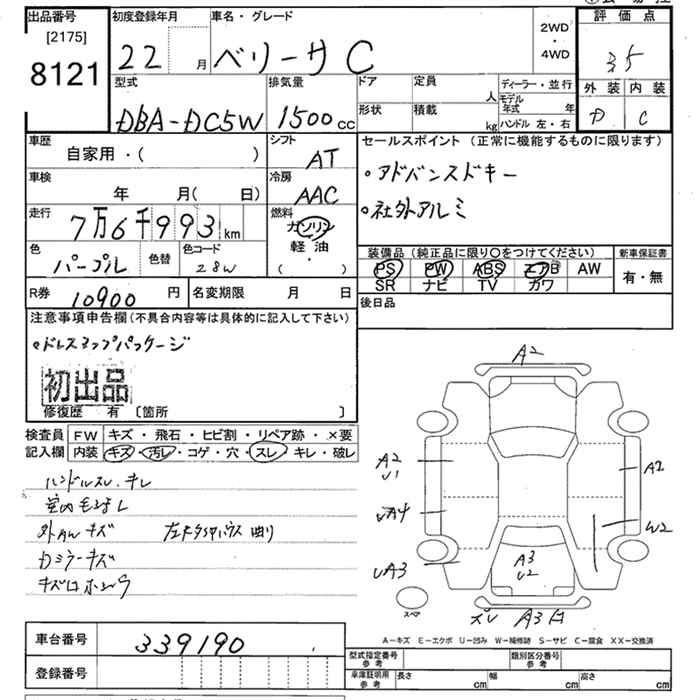 出品番号
[2175]
8121
初度登録年月
22 月
車名・グレード
ベリーサ C
2WD
・
4WD
評価点
3.5
外装 内装
D C
型式
DBA-DC5W
排気量
1500 cc
ドア
定員
人
形状
積載
kg
ディーラー・並行
モデル年式 年
ハンドル 左・右
車歴
自家用・( )
シフト
AT
車検
年 月( 日)
冷房
AAC
走行
7万6千993 km
燃料
ガソリン
軽油
( ・ )
色
パープル
色替
色コード
28W
R券
10900 円
名変期限 月 日
セールスポイント(正常に機能するものに限ります)
・アドバンスドキー
・社外アルミ
装備品(純正品に限り○をつけてください)
PS PW ABS エアB AW
SR ナビ TV カワ
新車保証書
有・無
後日品
注意事項申告欄(不具合内容等は具体的に記入して下さい)
・ドレスアップパッケージ
初出品
修復歴 有 〔箇所 〕
検査員記入欄
FW キズ・飛石・ヒビ割・リペア跡・×要
内装 キズ・汚レ・コゲ・穴・スレ・キレ・破レ
ハンドルスレ、キレ
外AWキズ
Dミラーキズ
A2
A2
U1
A2
UA4
W2
UA3
A3
U2
スペア
A3
A-キズ E-エクボ U-凹み W-補修跡 S-サビ C-腐食 XX-交換済
車台番号
339190
登録番号
型式指定番号 参考
類別区分番号 参考
車庫証明用 参考
長さ cm
幅 cm
高さ cm